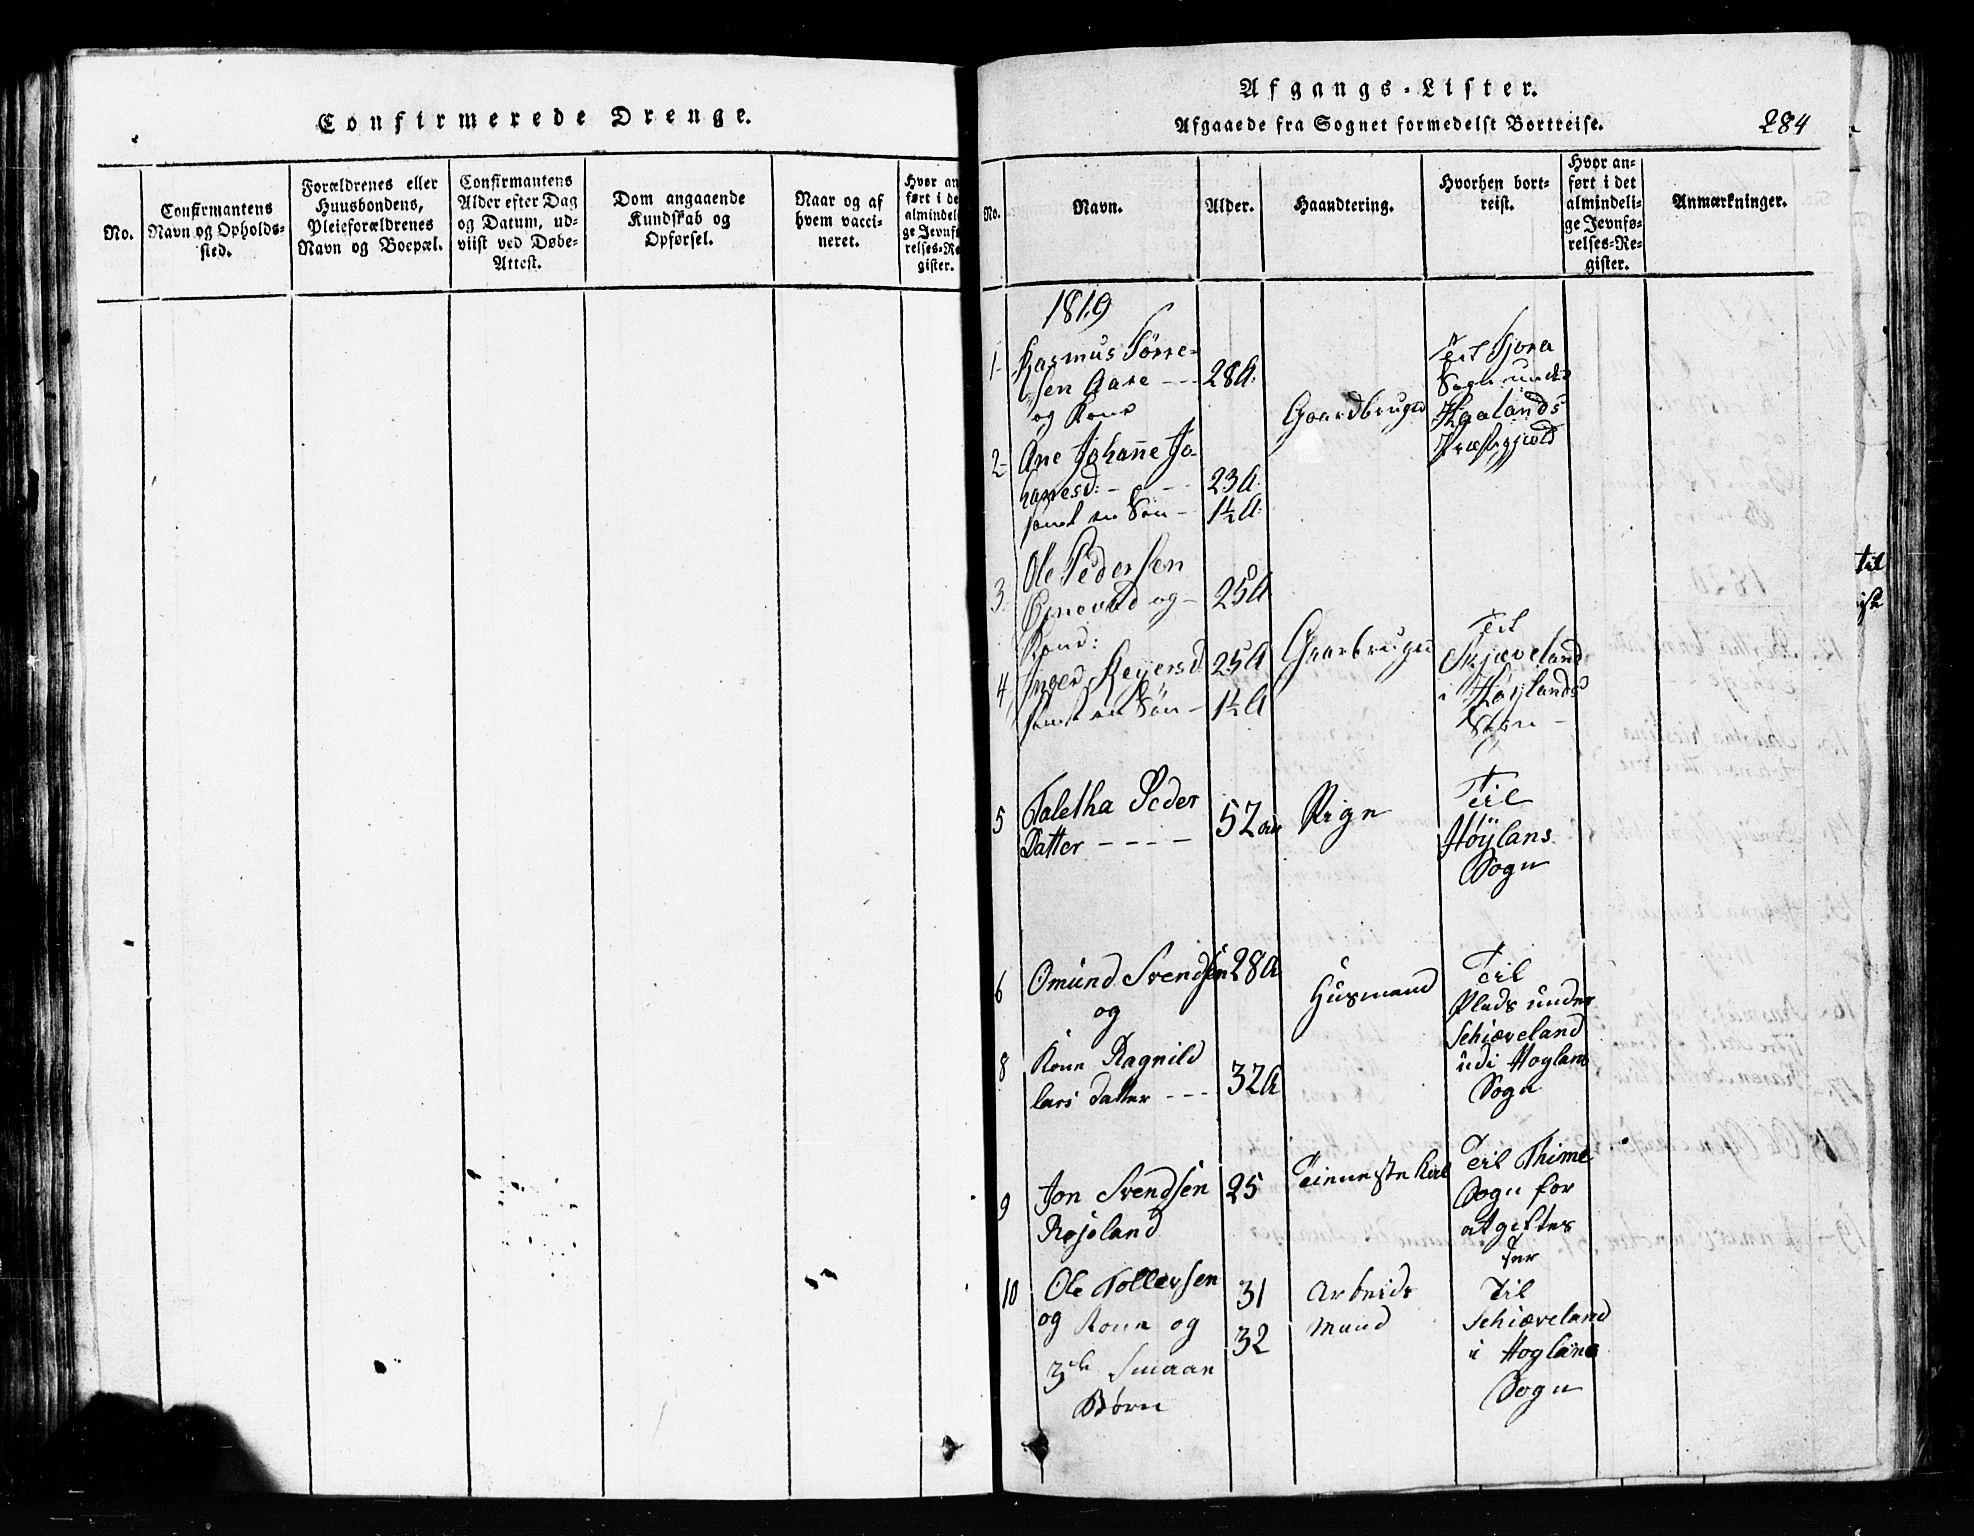 Confirmerede Drenge.
No.
Confirmantens
Navn og Opholds-
sted.
Forældrenes eller
Huusbondens,
Pleieforældrenes
Navn og Boepæl.
Confirmantens
Alder efter Dag
og Datum, ud-
viist ved Døbe-
Attest.
Dom angaaende
Kundskab og
Opførsel.
Naar og af
hvem vacci-
neret.
Hvor an
ført i de
almindel
ge Jevnf
relses-Re
gister.
Afgangs-Lister.
Afgaaede fra Sognet formedelst Bortreise.
284
No.
Navn.
Alder.
Haandtering.
Hvorhen bort-
reist.
Hvor an-
ført i det
almindeli-
ge Jevnfø-
relses-Re-
gister.
Anmærkninger.
1819
1 Rasmus Tørre-
sen Aase --- 28A.
og Kone
Gaardbruger
Til
Sogn under
Haalands
Præstegjæld
2 Ane Johanne Jo-
hanesd: - - - 23A.
samt en Søn - 1½A.
3 Ole Pedersen
og - 25A
Kone:
4 Inger Reyersd 25A
samt en Søn - 1½A
Gaarbruger
Til
Skjæveland
i Høylands
Sogn -
5 Taletha Peder
Datter - - - - 52 aar
Pige
Til
Høÿlans
Sogn
6 Omund Svendsen 28A
og
Husmand
Til
Plads under
Schiæveland
udi Hoylans
Sogn
8 Kone Ragnild
lars datter --- 32A
9 Jon Svendsen 25
Røjsland
Tienneste Karl
Til Thime
Sogn for
at giftes
der
10 Ole Tollevsen 31
og Kone og 32
3de Smaae
Børn
Arbeids
Mand
Til
Schiæveland
i Hoylans
Sogn
til